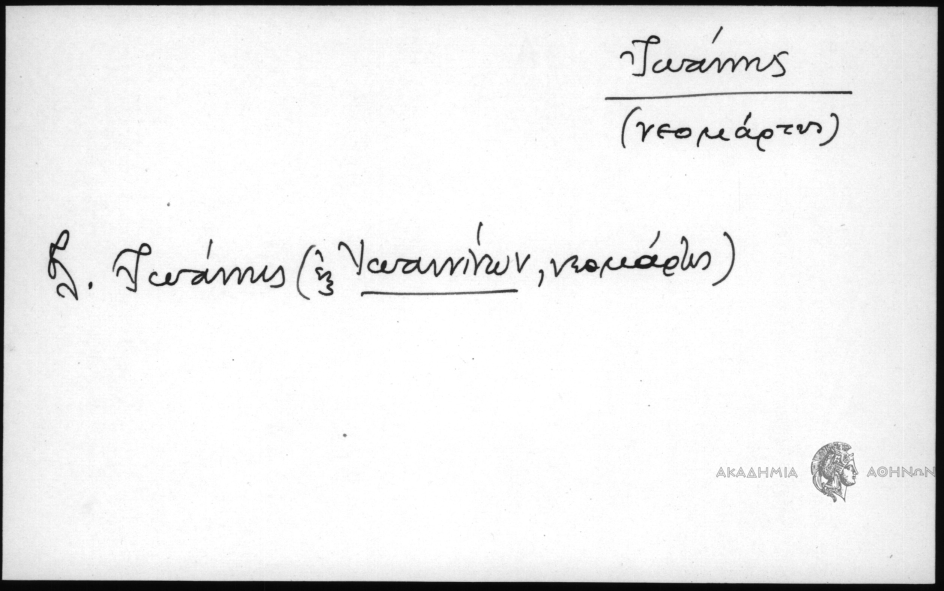 Ἰωάννης
(νεομάρτυς)
βλ. Ἰωάννης (ἐξ Ἰωαννίνων, νεομάρτυς)
ΑΚΑΔΗΜΙΑ ΑΘΗΝΩΝ